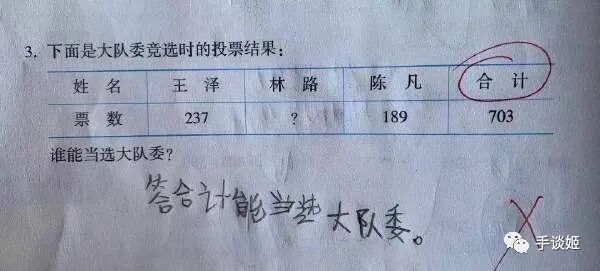 3. 下面是大队委竞选时的投票结果：
姓 名 王 泽 林 路 陈 凡 合 计
票 数 237 ? 189 703
谁能当选大队委？
答合计能当选大队委。
手谈姬